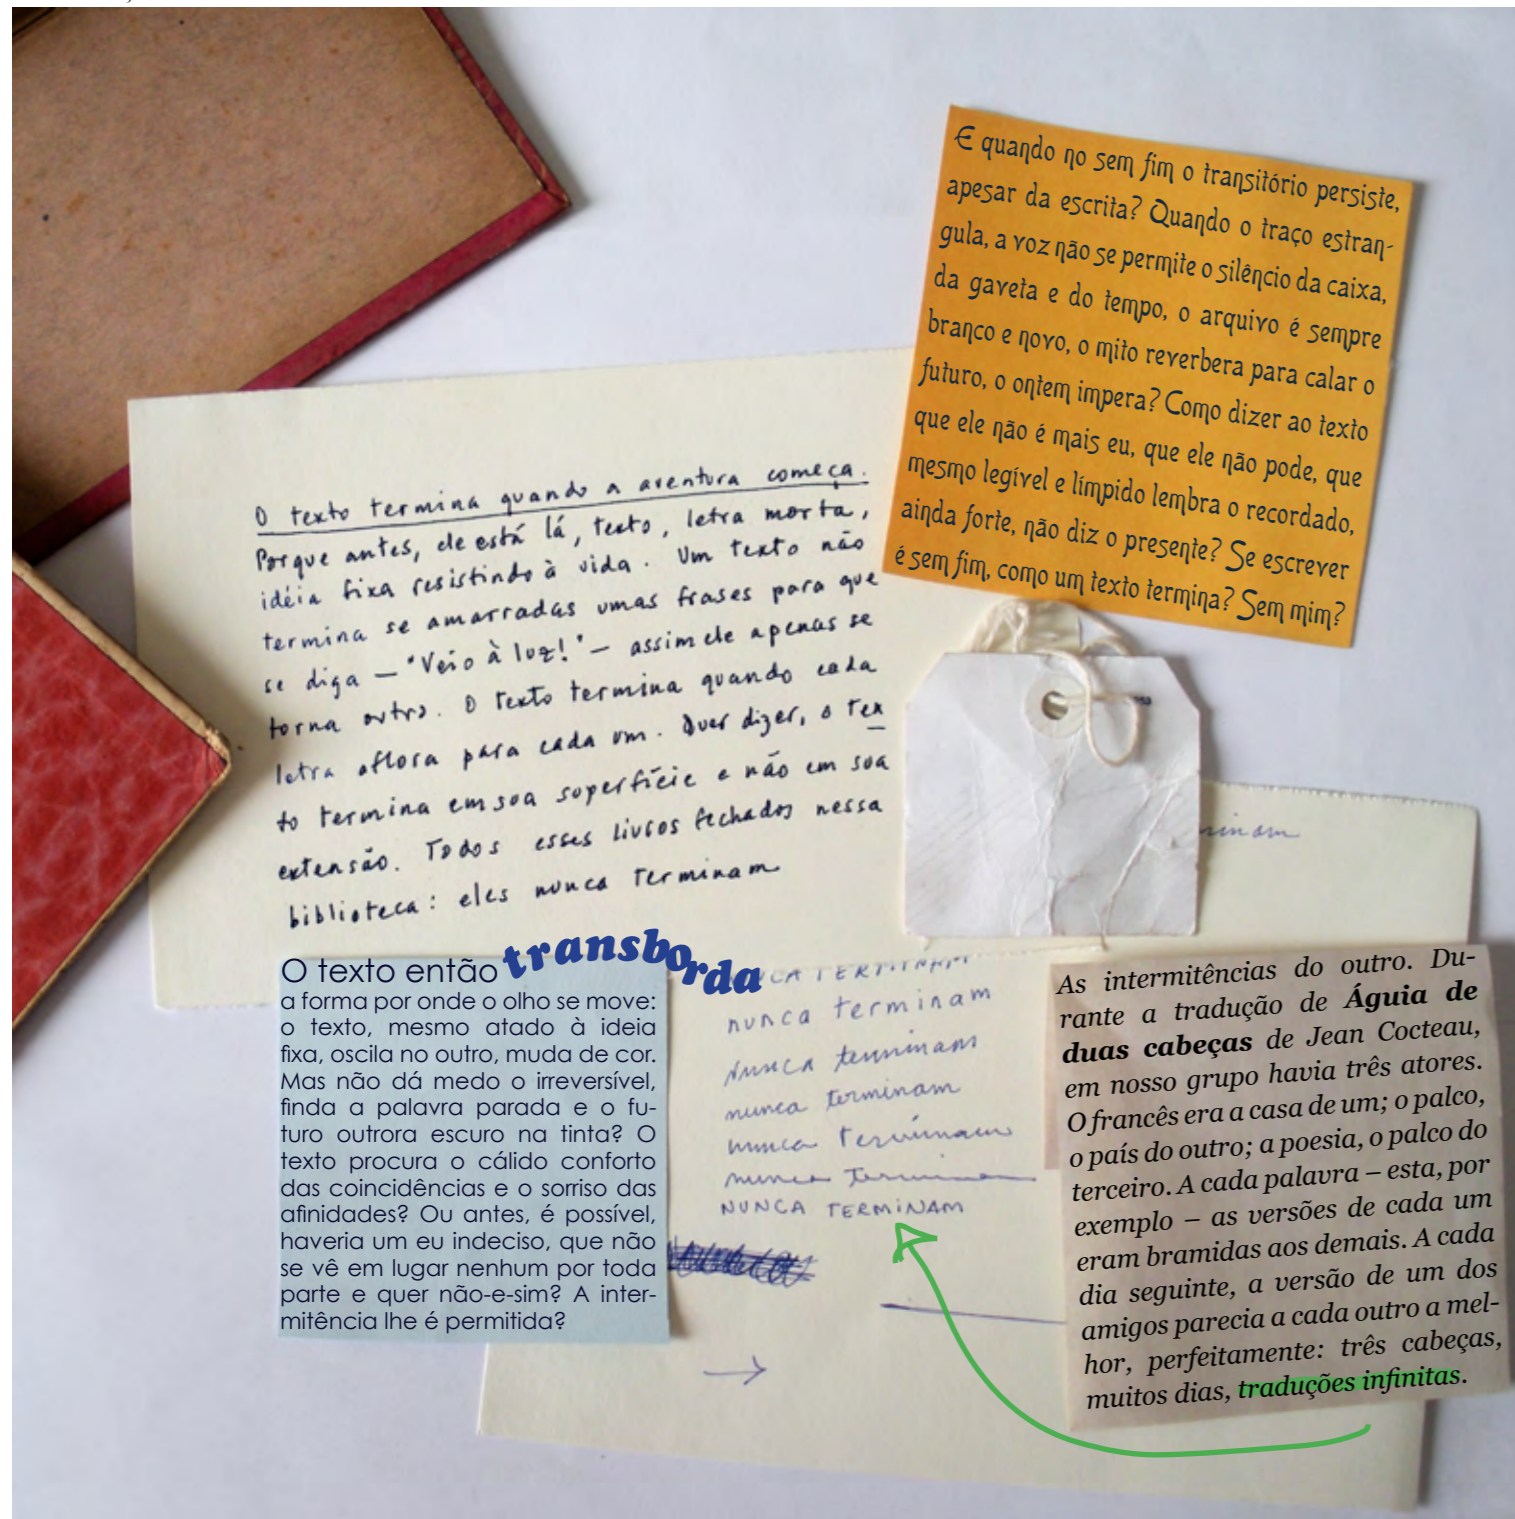 E quando no sem fim o transitório persiste,
apesar da escrita? Quando o traço estran-
gula, a voz não se permite o silêncio da caixa,
da gaveta e do tempo, o arquivo é sempre
branco e novo, o mito reverbera para calar o
futuro, o ontem impera? Como dizer ao texto
que ele não é mais eu, que ele não pode, que
mesmo legível e límpido lembra o recordado,
ainda forte, não diz o presente? Se escrever
é sem fim, como um texto termina? Sem mim?
O texto termina quando a aventura começa.
Porque antes, ele está lá, texto, letra morta,
idéia fixa resistindo à vida. Um texto não
termina se amarradas umas frases para que
se diga — "Veio à luz!" — assim ele apenas se
torna outro. O texto termina quando cada
letra aflora para cada um. Quer dizer, o tex
to termina em sua superfície e não em sua
extensão. Todos esses livros fechados nessa
biblioteca: eles nunca terminam
O texto então transborda
a forma por onde o olho se move:
o texto, mesmo atado à ideia
fixa, oscila no outro, muda de cor.
Mas não dá medo o irreversível,
finda a palavra parada e o fu-
turo outrora escuro na tinta? O
texto procura o cálido conforto
das coincidências e o sorriso das
afinidades? Ou antes, é possível,
haveria um eu indeciso, que não
se vê em lugar nenhum por toda
parte e quer não-e-sim? A inter-
mitência lhe é permitida?
nunca terminam
nunca terminam
nunca terminam
nunca terminam
nunca terminam
NUNCA TERMINAM
As intermitências do outro. Du-
rante a tradução de Águia de
duas cabeças de Jean Cocteau,
em nosso grupo havia três atores.
O francês era a casa de um; o palco,
o país do outro; a poesia, o palco do
terceiro. A cada palavra – esta, por
exemplo – as versões de cada um
eram bramidas aos demais. A cada
dia seguinte, a versão de um dos
amigos parecia a cada outro a mel-
hor, perfeitamente: três cabeças,
muitos dias, traduções infinitas.